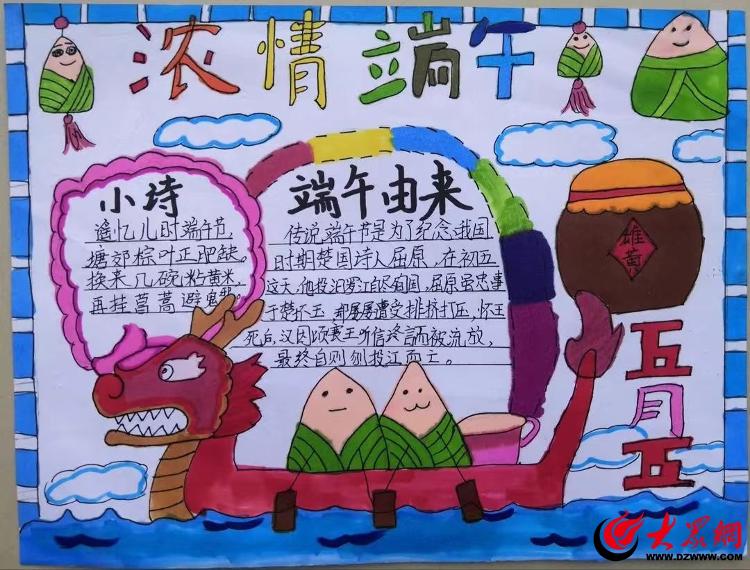 浓情端午
小诗
遥忆儿时端午节,
塘郊粽叶正肥缺。
换来几碗粘黄米,
再挂菖蒿避鬼
端午由来
传说,端午节是为了纪念我国
时期楚国诗人屈原,在初五
这天,他投汨罗江殉国,屈原虽忠事
于楚怀王,却屡屡遭受排挤打压,怀王
死后,又因顷襄王听信终言而被流放,
最终自则刎投江而亡。
雄黄
五月五
大众網
WWW.DZWWW.COM